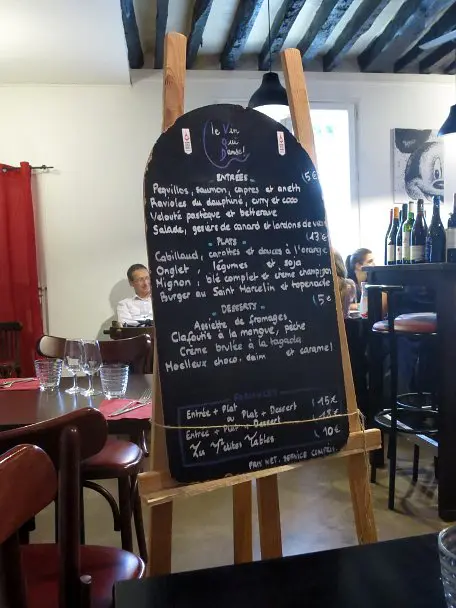 le Vin
Qui
Danse!
ENTRÉES 5€
Pequillos, saumon, capres et aneth
Ravioles du dauphiné, curry et coco
Velouté pastèque et betterave
Salade, gesiers de canard et lardons de
PLATS 13€
Cabillaud, carottes et douces à l'orange
Onglet, légumes et soja
Mignon, blé complet et crème champignon
Burger au Saint Marcelin et tapenade
DESSERTS 5€
Assiette de fromages
Clafoutis à la mangue, pêche
Crème brulée à la tagada
Moelleux choco, daim et caramel
Entrée + Plat ou Plat + Dessert 15€
Entrée + Plat + Dessert 18€
Les Petites Tables 10€
PRIX NET. SERVICE COMPRIS.